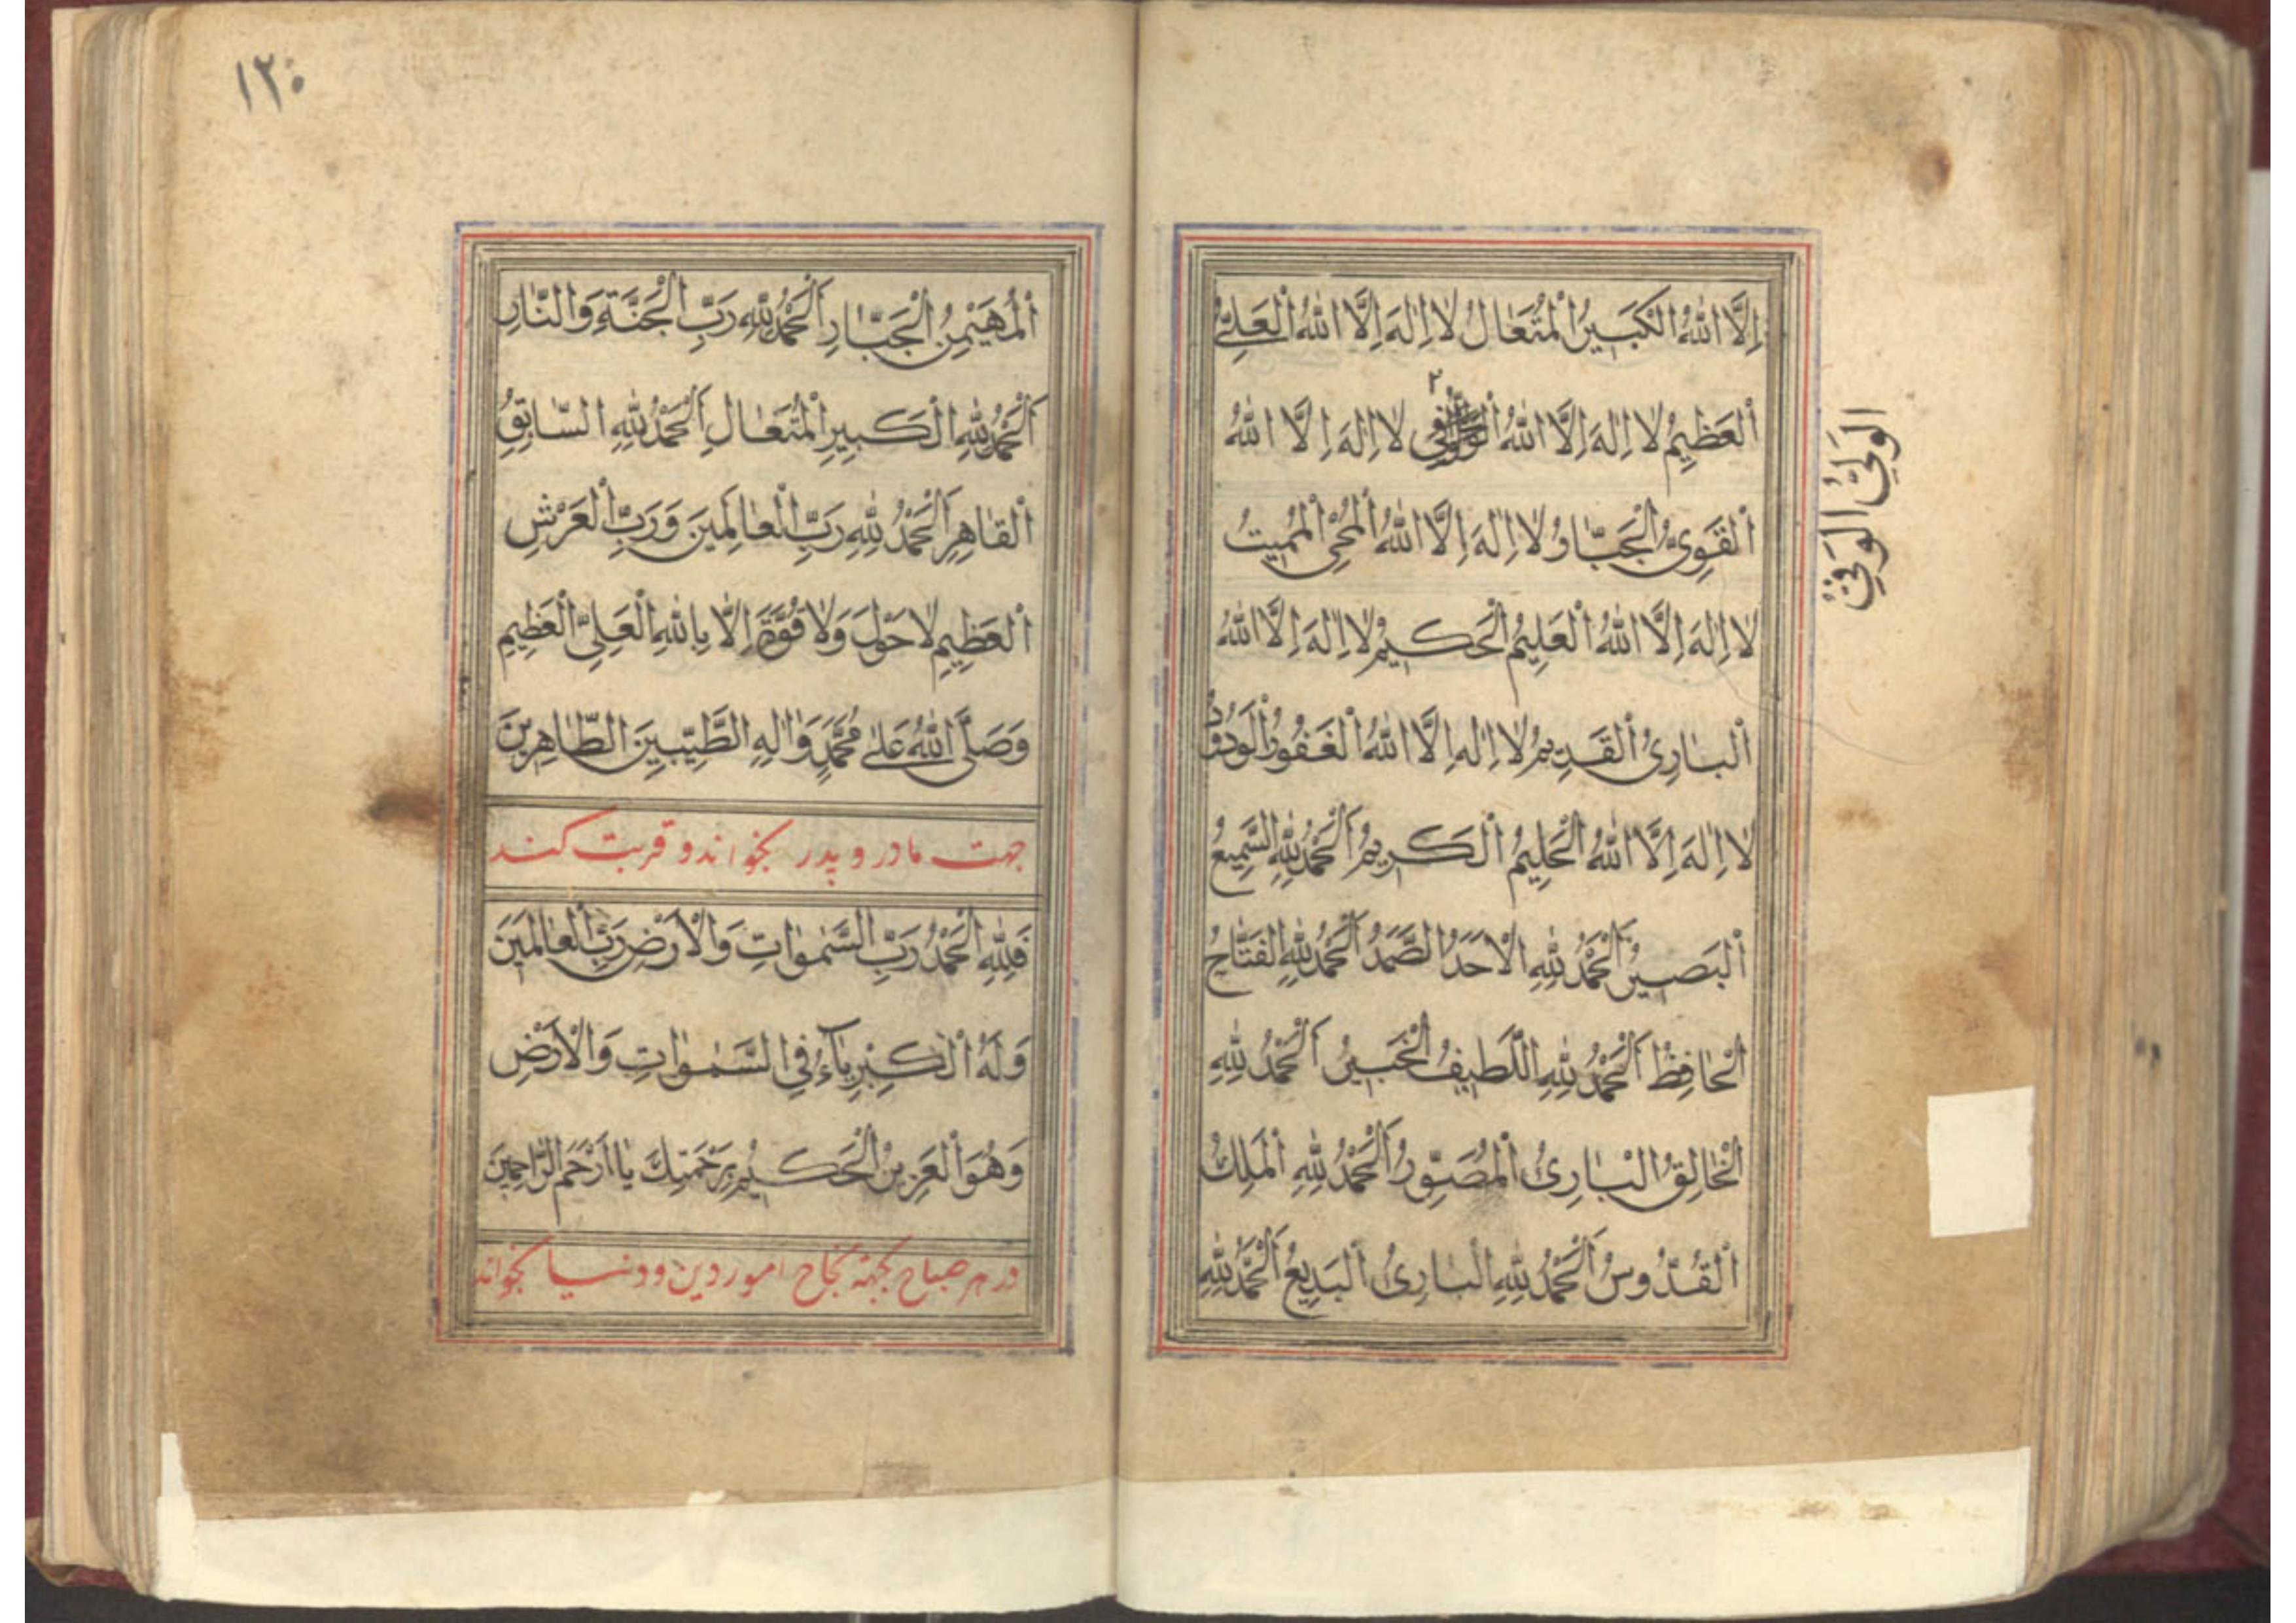 اِلَّا اللهُ الْكَبَيِرُ الْمُتَعٰالُ لٰا اِلٰهَ اِلَّا اللهُ الْعَلِىُّ
اَلْعَظٖيِمُ لٰا اِلٰهَ اِلَّا اللهُ لٰا اِلٰهَ اِلَّا اللهُ
۲
الوَلِيُّ الوَفِيُّ
اَلْقَوِىُّ الْجَبّٰاوُ لٰا اِلٰهَ اِلَّا اللهُ الْمُحْيِى الْمُمِيتُ
لٰا اِلٰهَ اِلَّا اللهُ الْعَلِيمُ الْحَكيمُ لٰا اِلٰهَ اِلَّا اللهُ
اَلْبٰارِئُ الْقَدٖيمُ لٰا اِلٰهَ اِلَّا اللهُ الْغَفُورُ الْوَدُودُ
لٰا اِلٰهَ اِلَّا اللهُ الْحَلِيمُ الْكَريمُ اَلْحَمْدُ لِلّٰهِ السَّمِيعُ
اَلْبَصيرُ اَلْحَمْدُ لِلّٰهِ الْاَحَدُ الصَّمَدُ اَلْحَمْدُ لِلّٰهِ الفَتّٰاحُ
الْحٰافِظُ اَلْحَمْدُ لِلّٰهِ اللَّطيفُ الْخَبيرُ اَلْحَمْدُ لِلّٰهِ
الْخٰالِقُ الْبٰارِئُ الْمُصَوِّرُ اَلْحَمْدُ لِلّٰهِ الْمَلِكُ
اَلْقُدُّوسُ اَلْحَمْدُ لِلّٰهِ الْبٰارِئُ الْبَديعُ اَلْحَمْدُ لِلّٰهِ
۱۲۰
اَلْمُهَيْمِنِ الْجَبّٰارِ اَلْحَمْدُ لِلّٰهِ رَبِّ الْجَنَّةِ وَالنّٰارِ
اَلْحَمْدُ لِلّٰهِ الْكَبيرِ الْمُتَعٰالِ اَلْحَمْدُ لِلّٰهِ السّٰابِقِ
اَلْقٰاهِرِ اَلْحَمْدُ لِلّٰهِ رَبِّ الْعٰالَمينَ وَرَبِّ الْعَرْشِ
اَلْعَظٖيمِ لٰا حَوْلَ وَلٰا قُوَّةَ اِلّٰا بِاللهِ الْعَلِىِّ الْعَظٖيمِ
وَصَلَّى اللهُ عَلٰى مُحَمَّدٍ وَاٰلِهِ الطَّيِّبينَ الطّٰاهِرينَ
جهت مادر و پدر بخواند و قربت کند
فَلِلّٰهِ الْحَمْدُ رَبِّ السَّمٰوٰاتِ وَالْاَرْضِ رَبِّ الْعٰالَمينَ
وَلَهُ الْكِبْرِيٰاءُ فِى السَّمٰوٰاتِ وَالْاَرْضِ
وَهُوَ الْعَزيزُ الْحَكيمُ بِرَحْمَتِكَ يٰا اَرْحَمَ الرّٰاحِمينَ
در هر صباح بجهة نجاح امور دین و دنیا بخواند